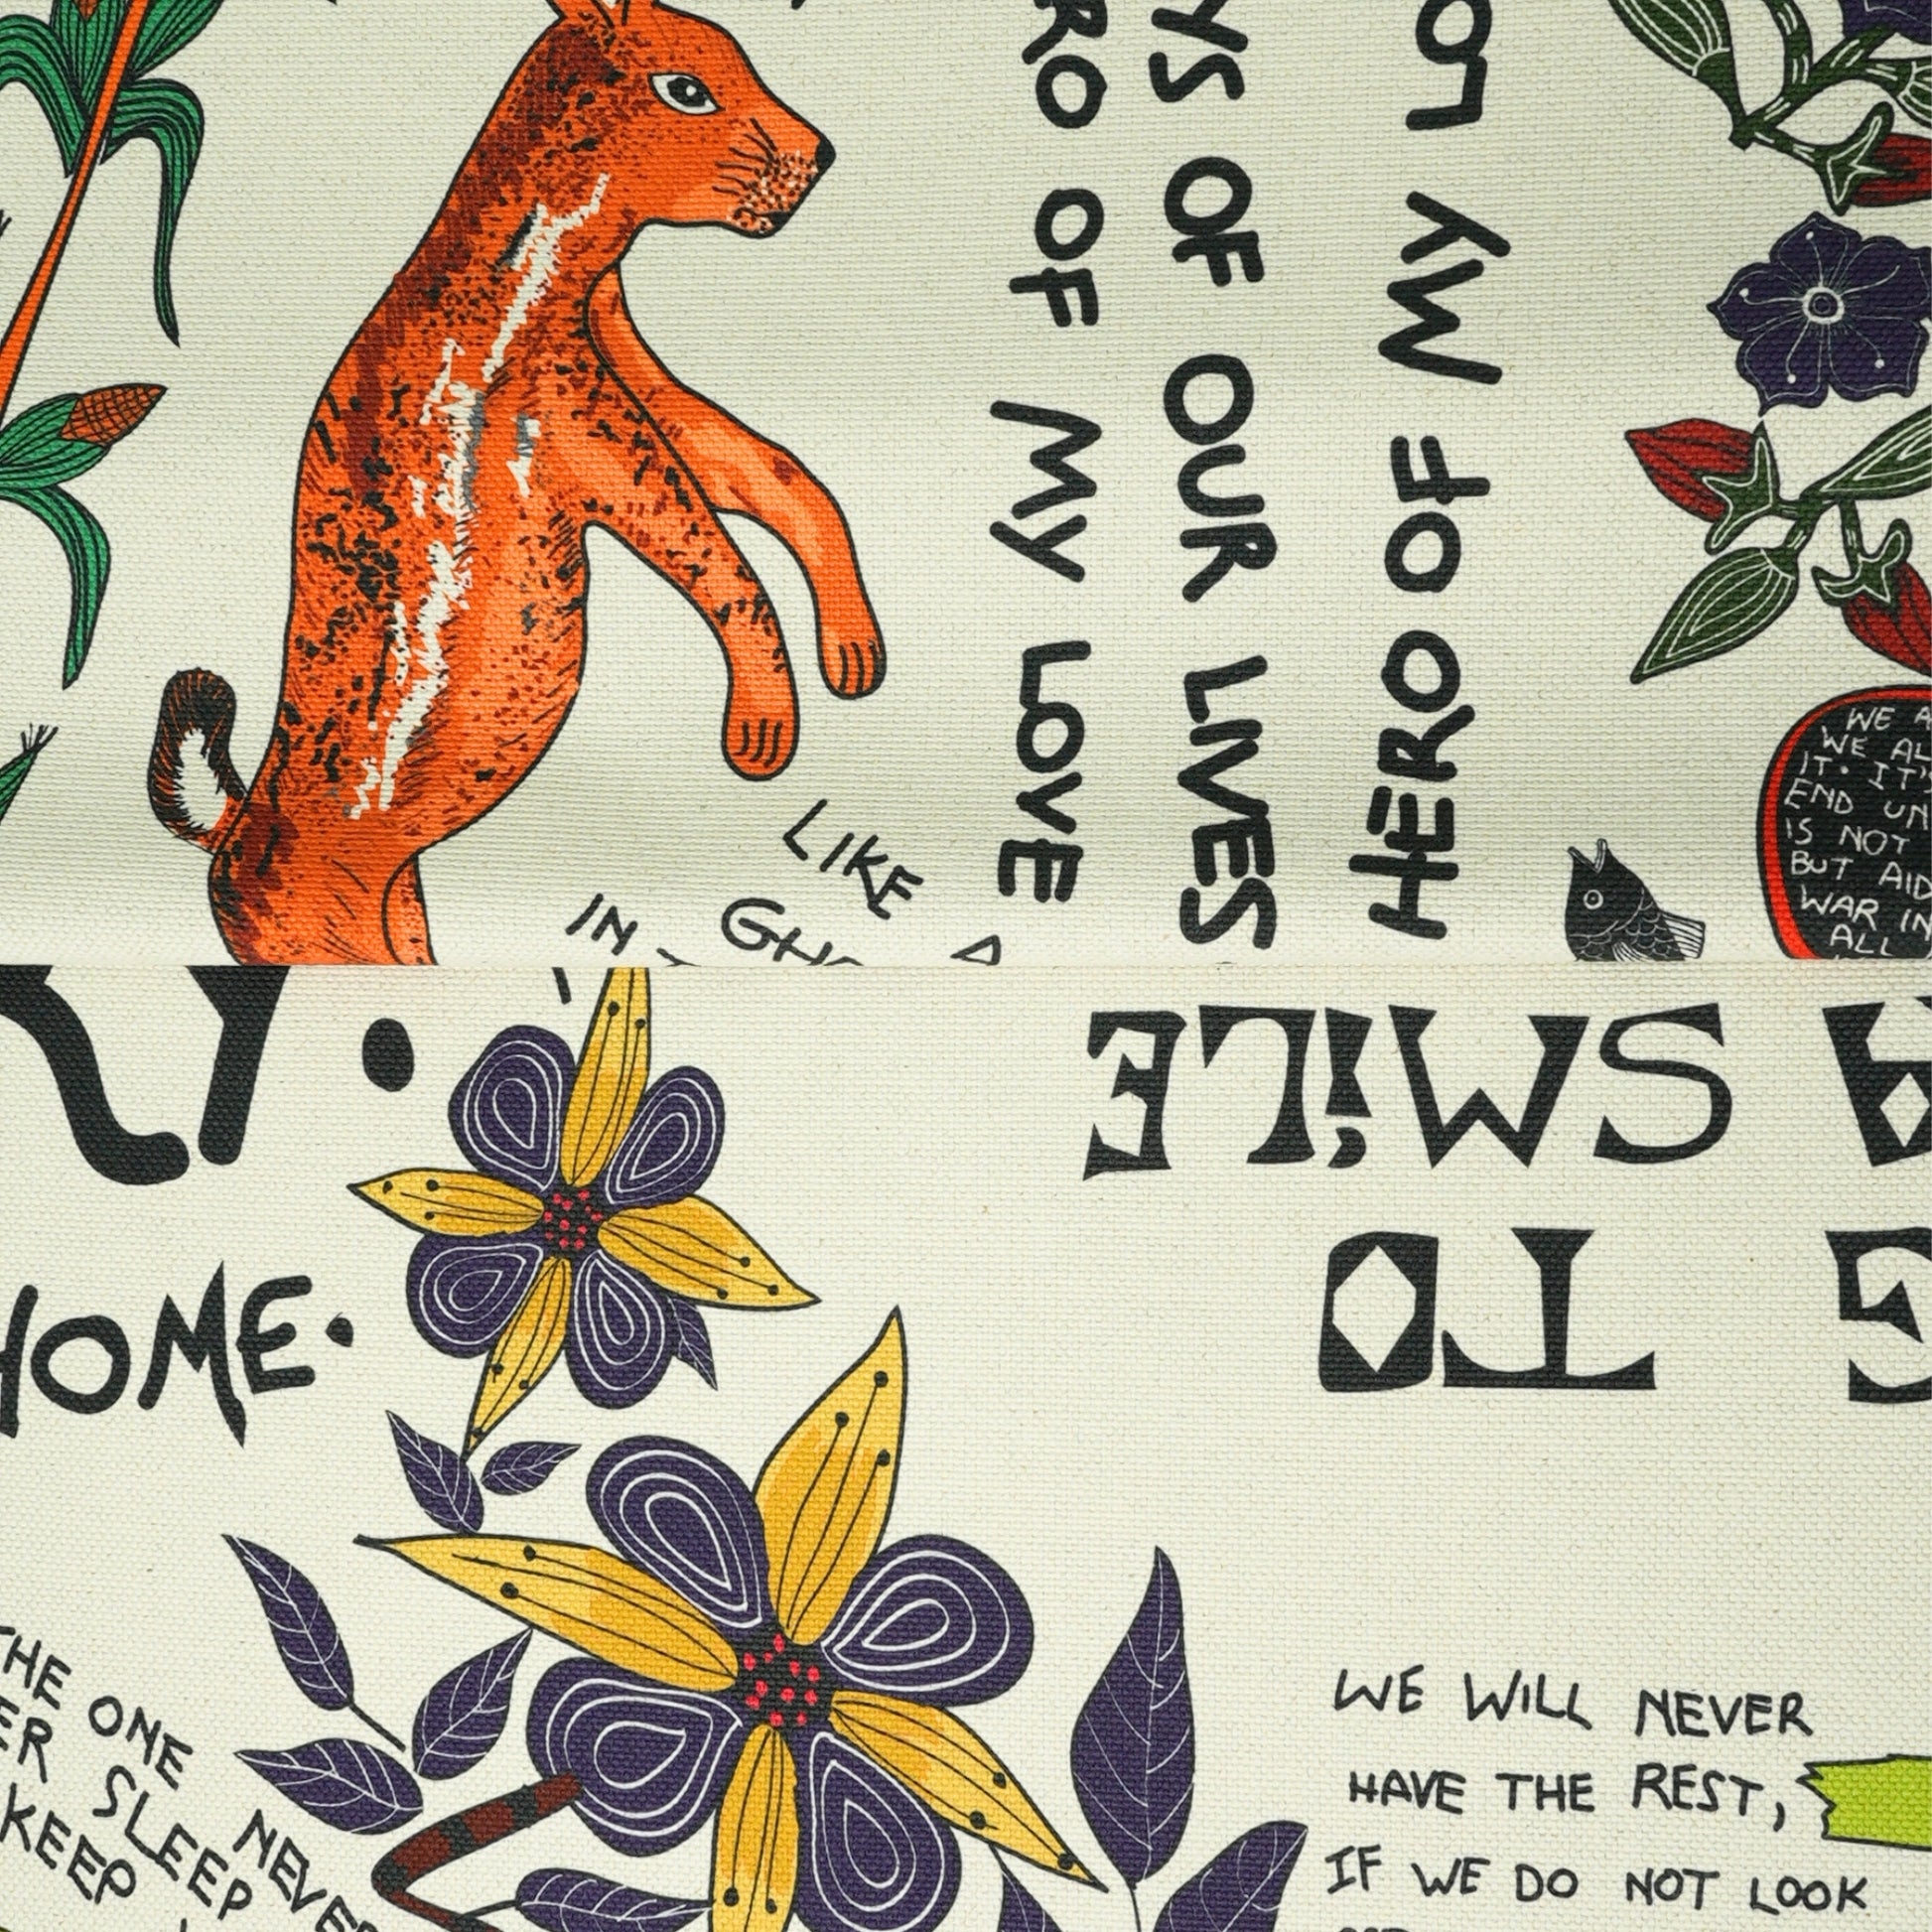 RO OF MY LOVE
YS OF OUR LIVES
HERO OF MY LO
LIKE
IN
WE A
WE AL
IT. IT
END UN
IS NOT
BUT AID
WAR IN
ALL
A SMILE
TO
HOME.
THE ONE NEVER
ER SLEEP
KEEP
WE WILL NEVER
HAVE THE REST,
IF WE DO NOT LOOK